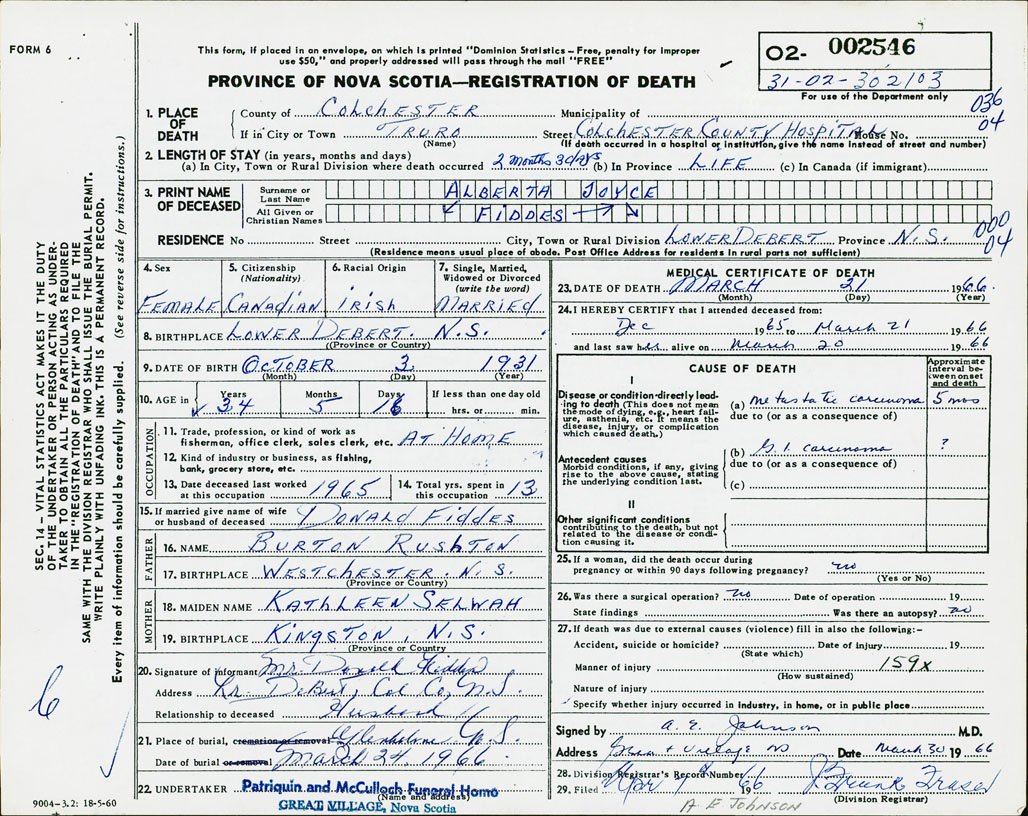 FORM 6
This form, if placed in an envelope, on which is printed "Dominion Statistics – Free, penalty for improper
use $50," and properly addressed will pass through the mail "FREE"
PROVINCE OF NOVA SCOTIA—REGISTRATION OF DEATH
O2- 002546
31-02-302103
For use of the Department only
036
04
1. PLACE OF DEATH
County of COLCHESTER Municipality of
If in City or Town TRURO Street COLCHESTER COUNTY HOSPITAL House No.
(Name) (If death occurred in a hospital or institution, give the name instead of street and number)
2. LENGTH OF STAY (in years, months and days)
(a) In City, Town or Rural Division where death occurred 2 months 3 days (b) In Province LIFE (c) In Canada (if immigrant)
3. PRINT NAME OF DECEASED
Surname or Last Name ALBERTA JOYCE
All Given or Christian Names FIDDES
000
04
RESIDENCE No Street City, Town or Rural Division LOWER DEBERT Province N.S.
(Residence means usual place of abode. Post Office Address for residents in rural parts not sufficient)
4. Sex FEMALE
5. Citizenship (Nationality) CANADIAN
6. Racial Origin IRISH
7. Single, Married, Widowed or Divorced (write the word) MARRIED
8. BIRTHPLACE LOWER DEBERT. N.S.
(Province or Country)
9. DATE OF BIRTH OCTOBER 3 1931
(Month) (Day) (Year)
10. AGE in Years 34 Months 5 Days 18 If less than one day old hrs. or min.
OCCUPATION
11. Trade, profession, or kind of work as fisherman, office clerk, sales clerk, etc. AT HOME
12. Kind of industry or business, as fishing, bank, grocery store, etc.
13. Date deceased last worked at this occupation 1965
14. Total yrs. spent in this occupation 13
15. If married give name of wife or husband of deceased DONALD FIDDES
FATHER
16. NAME BURTON RUSHTON
17. BIRTHPLACE WESTCHESTER. N.S.
(Province or Country)
MOTHER
18. MAIDEN NAME KATHLEEN SELWAH
19. BIRTHPLACE KINGSTON, N.S.
(Province or Country)
20. Signature of informant Mr. Donald Fiddes
Address Lr. Debert, Col Co, N.S.
Relationship to deceased Husband
21. Place of burial, cremation or removal Glenholme N.S.
Date of burial or removal March 24, 1966
22. UNDERTAKER Patriquin and McCulloch Funeral Home
(Name and address)
GREAT VILLAGE, Nova Scotia
MEDICAL CERTIFICATE OF DEATH
23. DATE OF DEATH MARCH 21 1966
(Month) (Day) (Year)
24. I HEREBY CERTIFY that I attended deceased from:
Dec 1965 to March 21 1966
and last saw her alive on March 20 1966
CAUSE OF DEATH
Approximate interval between onset and death
I
Disease or condition directly leading to death (This does not mean the mode of dying, e.g., heart failure, asthenia, etc. It means the disease, injury, or complication which caused death.)
(a) metastatic carcinoma 5 mos
due to (or as a consequence of)
Antecedent causes
Morbid conditions, if any, giving rise to the above cause, stating the underlying condition last.
(b) G.I. carcinoma ?
due to (or as a consequence of)
(c)
II
Other significant conditions
contributing to the death, but not related to the disease or condition causing it.
25. If a woman, did the death occur during
pregnancy or within 90 days following pregnancy? no
(Yes or No)
26. Was there a surgical operation? no Date of operation 19
State findings Was there an autopsy? no
27. If death was due to external causes (violence) fill in also the following:–
Accident, suicide or homicide? Date of injury 19
(State which)
Manner of injury 159x
(How sustained)
Nature of injury
Specify whether injury occurred in industry, in home, or in public place
Signed by A. E. Johnson M.D.
Address Great Village NS Date March 30 1966
28. Division Registrar's Record Number
29. Filed Apr 9 1966
(Division Registrar)
A E JOHNSON
SEC. 14 – VITAL STATISTICS ACT MAKES IT THE DUTY
OF THE UNDERTAKER OR PERSON ACTING AS UNDER-
TAKER TO OBTAIN ALL THE PARTICULARS REQUIRED
IN THE "REGISTRATION OF DEATH" AND TO FILE THE
SAME WITH THE DIVISION REGISTRAR WHO SHALL ISSUE THE BURIAL PERMIT.
WRITE PLAINLY WITH UNFADING INK. THIS IS A PERMANENT RECORD.
Every item of information should be carefully supplied. (See reverse side for instructions.)
6
9004-3.2: 18-5-60